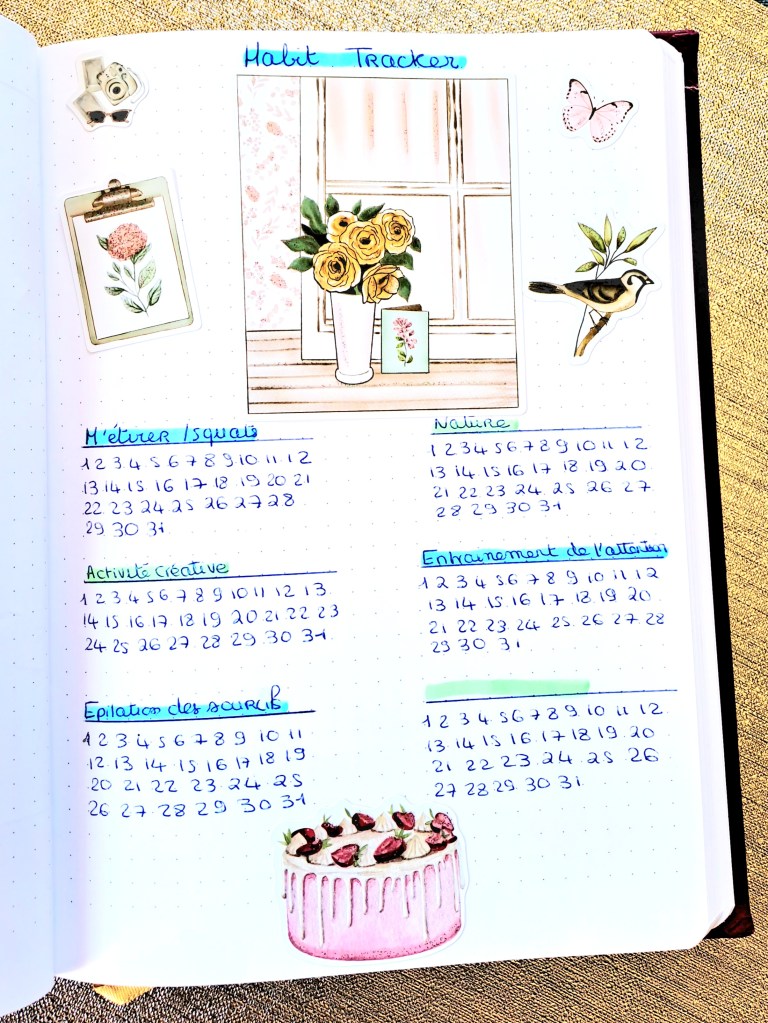 Habit Tracker
M'étirer /squats
1 2 3 4 5 6 7 8 9 10 11 12
13 14 15 16 17 18 19 20 21
22 23 24 25 26 27 28
29 30 31
Nature
1 2 3 4 5 6 7 8 9 10 11 12
13 14 15 16 17 18 19 20
21 22 23 24 25 26 27
28 29 30 31
Activité créative
1 2 3 4 5 6 7 8 9 10 11 12 13
14 15 16 17 18 19 20 21 22 23
24 25 26 27 28 29 30 31
Entrainement de l'attention
1 2 3 4 5 6 7 8 9 10 11 12
13 14 15 16 17 18 19 20
21 22 23 24 25 26 27 28
29 30 31
Epilation des sourcils
1 2 3 4 5 6 7 8 9 10 11
12 13 14 15 16 17 18 19
20 21 22 23 24 25
26 27 28 29 30 31
1 2 3 4 5 6 7 8 9 10 11 12
13 14 15 16 17 18 19 20
21 22 23 24 25 26
27 28 29 30 31